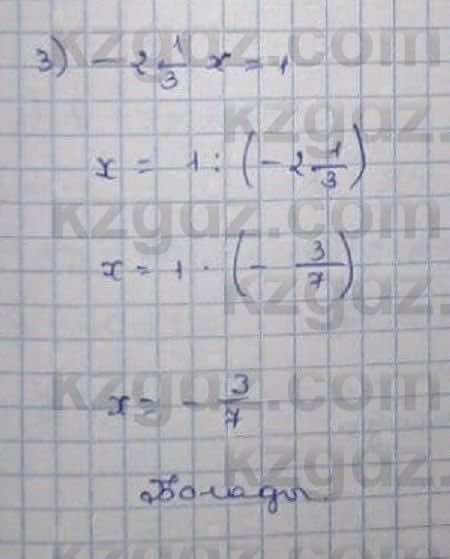 3) - 2 1/3 x = 1
x = 1 : (- 2 1/3)
x = 1 · (- 3/7)
x = - 3/7
Болады.
kzgdz.com
kzgdz.com
kzgdz.com
kzgdz.com
kzgdz.com
kzgdz.com